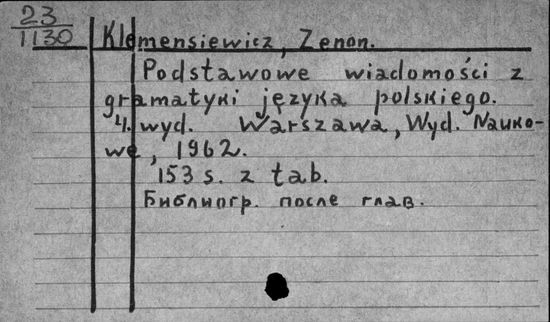 23
1130
Klemensiewicz, Zenon.
Podstawowe wiadomości z
gramatyki języka polskiego.
4. wyd. Warszawa, Wyd. Nauko-
we, 1962.
153 s. z tab.
Библиогр. после глав.